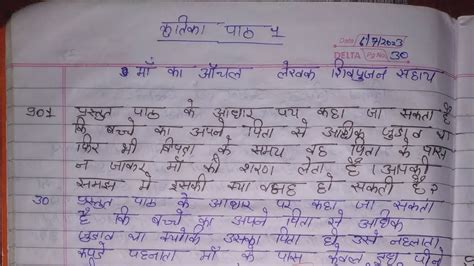 कृतिका पाठ 1
Date 6/7/2023
DELTA Pg No. 30
माँ का आँचल लेखक शिवपूजन सहाय
प्र01 प्रस्तुत पाठ के आधार पर कहा जा सकता है
कि बच्चे का अपने पिता से अधिक जुड़ाव था
फिर भी विपदा के समय वह पिता के पास
न जाकर माँ की शरण लेता है। आपकी
समझ मे इसकी क्या वजह हो सकती है?
उ0 प्रस्तुत पाठ के आधार पर कहा जा सकता
है कि बच्चे का अपने पिता से अधिक
जुड़ाव था क्योंकि उसका पिता ही उसे नहलाता
कपड़े पहनाता माँ के पास केवल दूध पीने